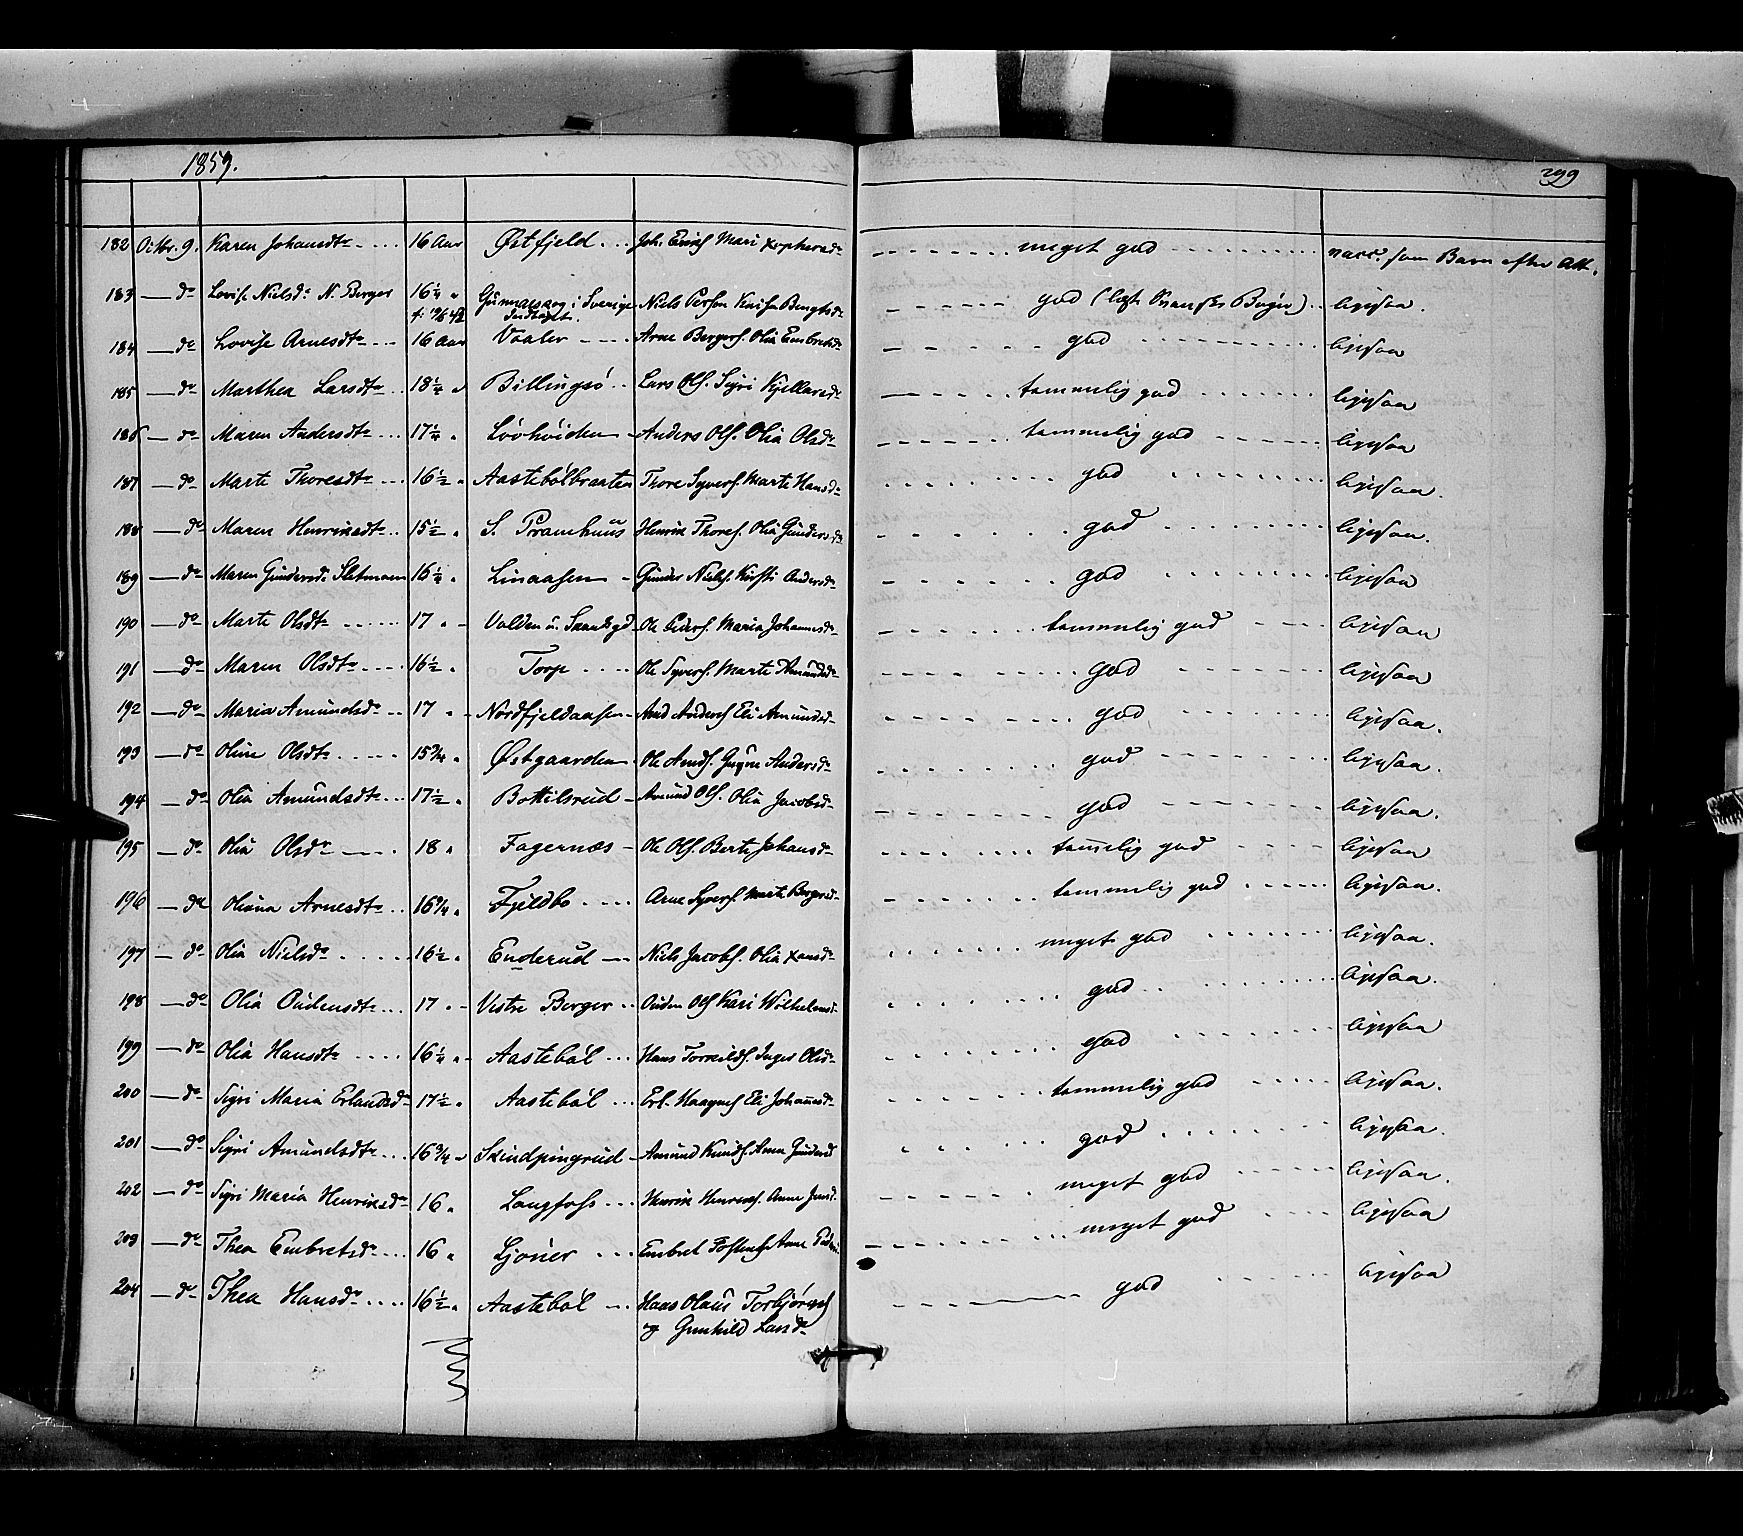 1859.
299
182 Octbr. 9. Karen Johansdtr 16 Aar Østfjeld Joh. Mari meget god vacc. som Barn efter Att.
183 do Lovise Nielsdr N. Berger 16¼ Gunnarskog i Sverige Niels Persen Bengtsdr god (læst Svenske Bøger) ligesaa.
184 do Lovise Arnesdtr 16 Aar Vaaler Arne Bergers. Olia Embretsdr god ligesaa
185 do Marthea Larsdtr 18¼ Billingsø Lars Ols. Sigri Kjellarsdr temmelig god ligesaa
186 do Maren Andersdtr 17¼ Løvhøiden Anders Ols. Olia Olsdr temmelig god ligesaa
187 do Marte Thoresdtr 16½ Aastebølbraaten Thore Syvers. Marte Hansdr god ligesaa.
188 do Maren Henriksdtr 15½ S. Pramhuus Henrik Thores. Olia Gundersdr god ligesaa.
189 do Maren Gundersdr Sletmoen 16¼ Linaasen Gunder Niels. Kirsti Andersdr god ligesaa
190 do Marte Olsdtr 17 Volden u. Ole Peders. Maria Johannesdr temmelig god ligesaa
191 do Maren Olsdtr 16½ Torp Ole Syvers. Marte Amundsdr god ligesaa
192 do Maria Amundsdr 17 Nordfjeldaasen And Anders Eli Amundsdr god ligesaa.
193 do Oline Olsdtr 15¾ Østgaarden Ole Amds. Andersdr god ligesaa.
194 do Olia Amundsdtr 17½ Bottilsrud Amund Ols. Olia Jacobsdr god ligesaa.
195 do Olia Olsdr 18 Fagernæs Ole Ols. Berte Johansdr temelig god ligesaa
196 do Oliana Arnesdtr 16¾ Fjeldbo Arne Syvers. Marte Bergersdr temmelig god ligesaa.
197 do Olia Nielsdr 16½ Enderud Niels Jacobs. Olia meget god ligesaa.
198 do Olia Oudensdtr 17 Vestre Berger Ouden Ols Kari god ligesaa.
199 do Olia Hansdtr 16¼ Aastebøl Hans Torkilds. Inger Olsdr god ligesaa
200 do Sigri Maria Erlandsdr 17½ Aastebøl Erl. Haagens Eli Johansdr temmelig god ligesaa.
201 do Sigri Amundsdtr 16¾ Skindpungrud Amund Knuds. Anna Gundersd god ligesaa.
202 do Sigri Maria Henriksdr 16 Langfoss Henrik Henriks. Anne meget god ligesaa.
203 do Thea Embretsdr 16 Ljoner Embret Anne meget god ligesaa
204 do Thea Hansdr 16½ Aastebøl Hans Olaus Torbjørns god ligesaa
og Gunhild Larsdr